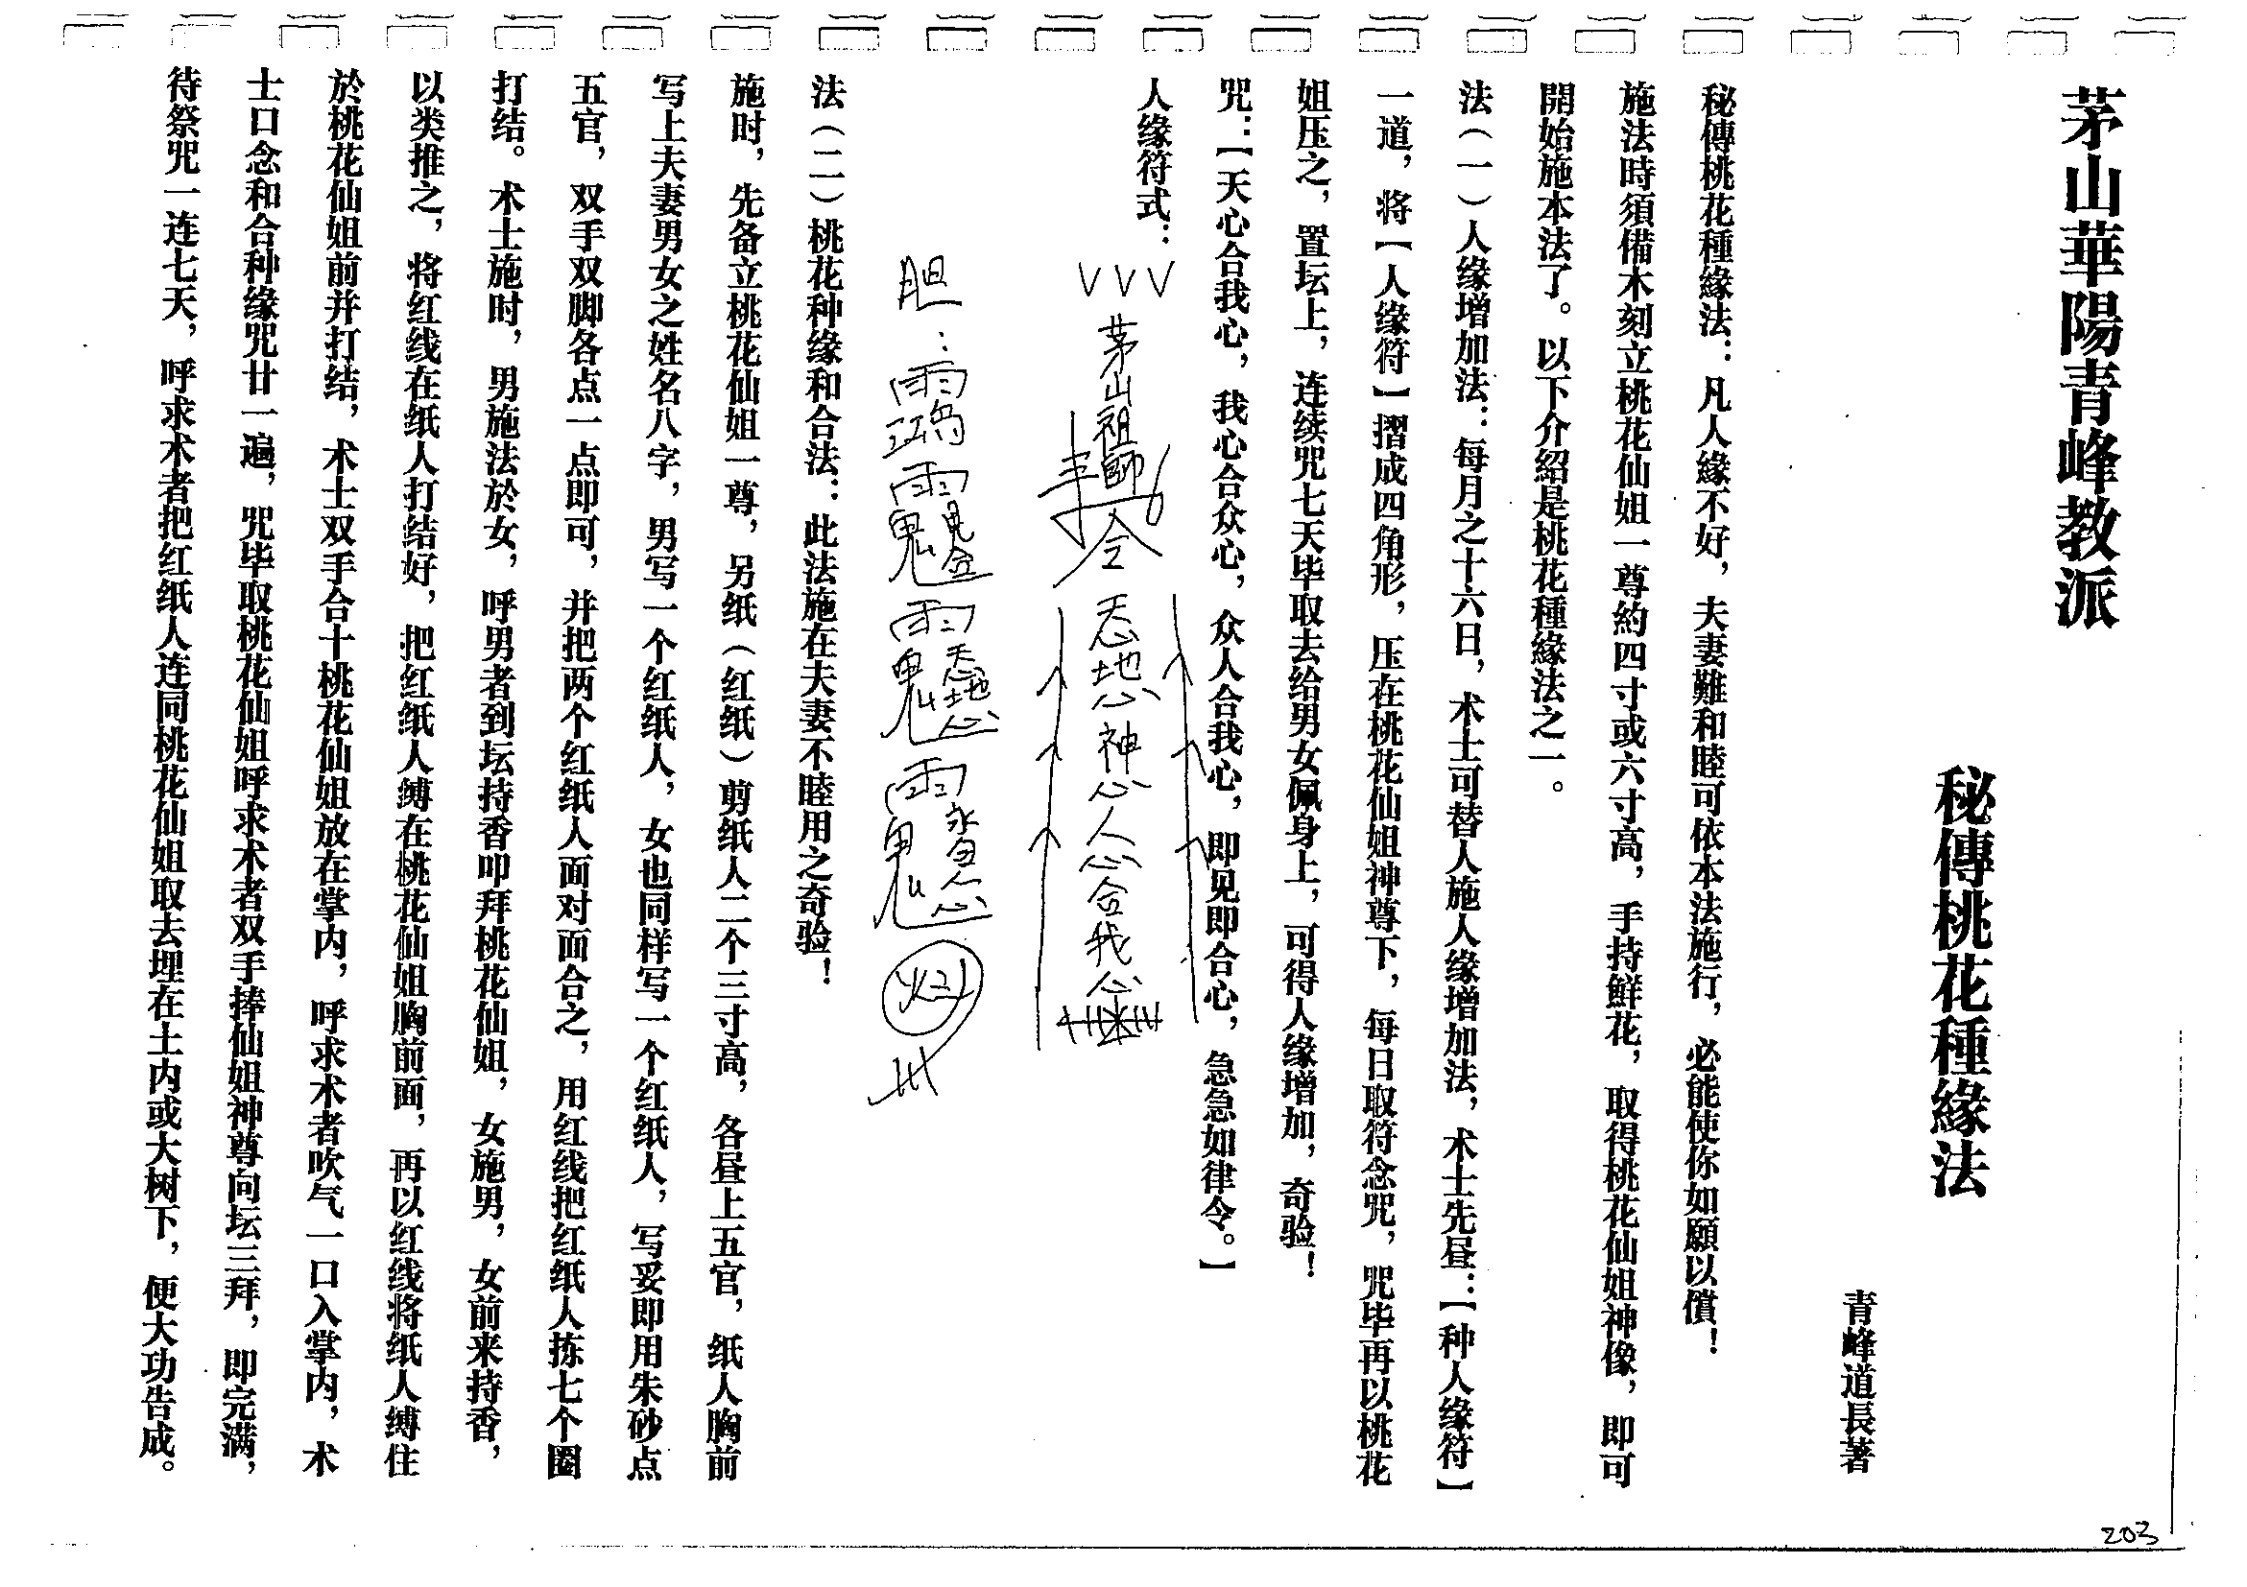 茅山華陽青峰教派
秘傳桃花種緣法
青峰道長著
秘傳桃花種緣法：凡人緣不好，夫妻難和睦可依本法施行，必能使你如願以償！
施法時須備木刻立桃花仙姐一尊約四寸或六寸高，手持鮮花，取得桃花仙姐神像，即可
開始施本法了。以下介紹是桃花種緣法之一。
法（一）人缘增加法：每月之十六日，术士可替人施人缘增加法，术士先昼：【种人缘符】
一道，将【人缘符】摺成四角形，压在桃花仙姐神尊下，每日取符念咒，咒毕再以桃花
姐压之，置坛上，连续咒七天毕取去给男女佩身上，可得人缘增加，奇验！
咒：【天心合我心，我心合众心，众人合我心，即见即合心，急急如律令。】
人缘符式：
茅山祖師令
神心人心合我心
胆：
法（二）桃花种缘和合法：此法施在夫妻不睦用之奇验！
施时，先备立桃花仙姐一尊，另纸（红纸）剪纸人二个三寸高，各昼上五官，纸人胸前
写上夫妻男女之姓名八字，男写一个红纸人，女也同样写一个红纸人，写妥即用朱砂点
五官，双手双脚各点一点即可，并把两个红纸人面对面合之，用红线把红纸人拣七个圈
打结。术士施时，男施法於女，呼男者到坛持香叩拜桃花仙姐，女施男，女前来持香，
以类推之，将红线在纸人打结好，把红纸人缚在桃花仙姐胸前面，再以红线将纸人缚住
於桃花仙姐前并打结，术士双手合十桃花仙姐放在掌内，呼求术者吹气一口入掌内，术
士口念和合种缘咒廿一遍，咒毕取桃花仙姐呼求术者双手捧仙姐神尊向坛三拜，即完满，
待祭咒一连七天，呼求术者把红纸人连同桃花仙姐取去埋在土内或大树下，便大功告成。
203